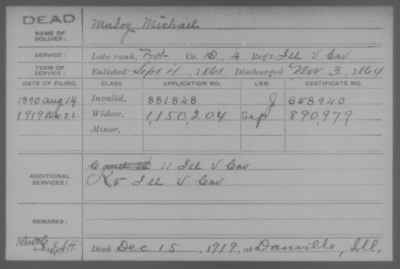 DEAD
NAME OF SOLDIER:
Maloy Michael
SERVICE:
Late rank, Pvt Co. D, 4 Reg't Ill V Cav
TERM OF SERVICE:
Enlisted Sept 4, 1861. Discharged Nov 3, 1864
DATE OF FILING. CLASS APPLICATION NO. LAW. CERTIFICATE NO.
1890 Aug 14 Invalid, 881848 J 658940
1919 Dec 22 Widow, 1,150,204 Sep 890,979
Minor,
ADDITIONAL SERVICES:
C 11 Ill V Cav
K 5 Ill V Cav
REMARKS:
Died Dec 15, 1919, at Danville, Ill.